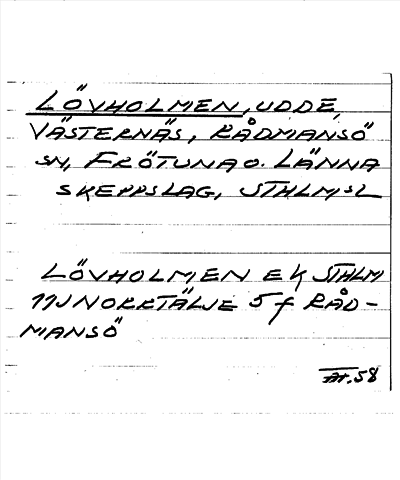 LÖVHOLMEN, UDDE,
VÄSTERNÄS, RÅDMANSÖ
SN, FRÖTUNA O. LÄNNA
SKEPPSLAG, STHLMSL
LÖVHOLMEN EK STHLM
11J NORRTÄLJE 5f RÅD-
MANSÖ
ÄT.58